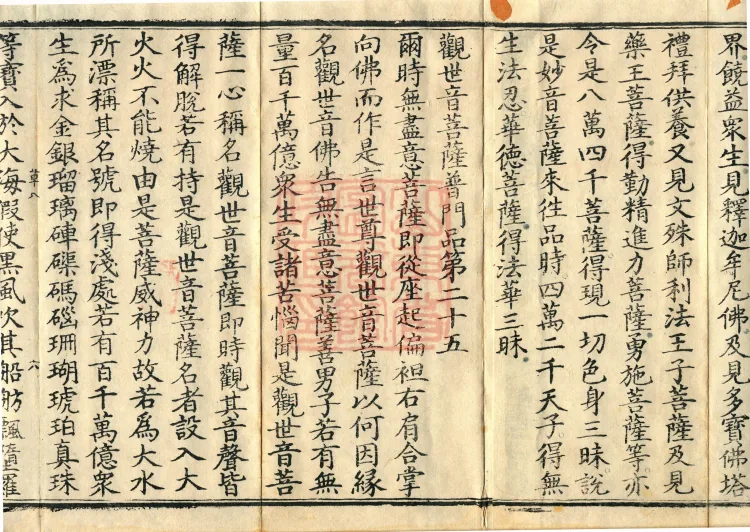 界饒益衆生見釋迦牟尼佛及見多寶佛塔
禮拜供養又見文殊師利法王子菩薩及見
藥王菩薩得勤精進力菩薩勇施菩薩等亦
令是八萬四千菩薩得現一切色身三昧說
是妙音菩薩來往品時四萬二千天子得無
生法忍華德菩薩得法華三昧
觀世音菩薩普門品第二十五
爾時無盡意菩薩即從座起偏袒右肩合掌
向佛而作是言世尊觀世音菩薩以何因緣
名觀世音佛告無盡意菩薩善男子若有無
量百千萬億衆生受諸苦惱聞是觀世音菩
薩一心稱名觀世音菩薩即時觀其音聲皆
得解脫若有持是觀世音菩薩名者設入大
火火不能燒由是菩薩威神力故若爲大水
所漂稱其名號即得淺處若有百千萬億衆
生爲求金銀瑠璃硨磲碼磂珊瑚琥珀真珠
草八
六
等寶入於大海假使黑風吹其船舫飄墮羅